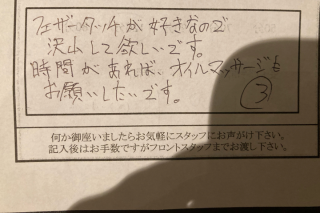 フェザータッチが好きなので
沢山して欲しいです。
時間があれば、オイルマッサージも
お願いしたいです。
③
何か御座いましたらお気軽にスタッフにお声がけ下さい。
記入後はお手数ですがフロントスタッフまでお渡し下さい。